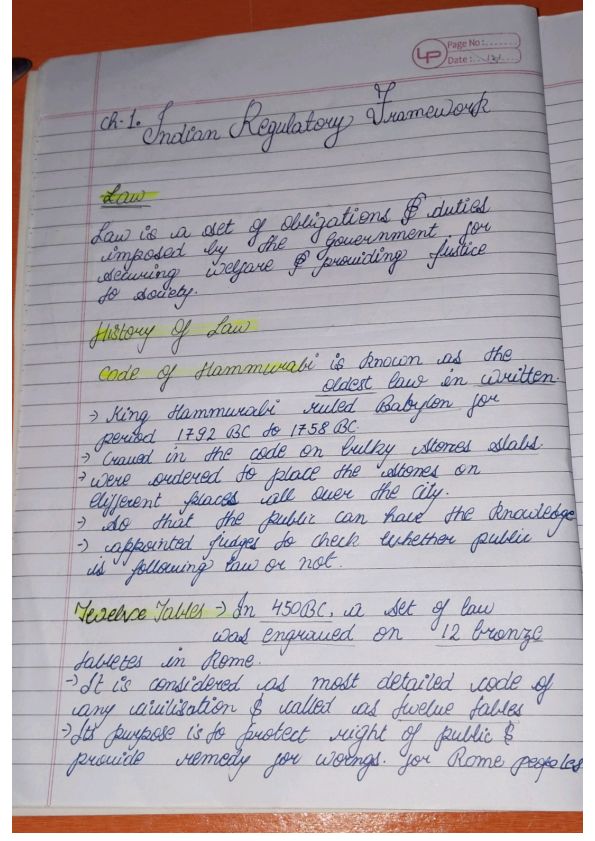 LP Page No:.......
Date:.......
Ch-1. Indian Regulatory Framework
Law
Law is a set of obligations & duties
imposed by the government for
securing welfare & providing justice
to society.
History of Law
Code of Hammurabi is known as the
oldest law in written.
→ King Hammurabi ruled Babylon for
period 1792 BC to 1758 BC
→ Craved in the code on bulky stones slabs.
→ were ordered to place the stones on
different places all over the city.
→ so that the public can have the knowledge
→ appointed judges to check whether public
is following law or not.
Twelve Tables → In 450BC, a set of law
was engraved on 12 bronze
tabletes in Rome.
→ It is considered as most detailed code of
any civilisation & called as twelve tables
→ Its purpose is to protect right of public &
provide remedy for worngs. for Rome peoples